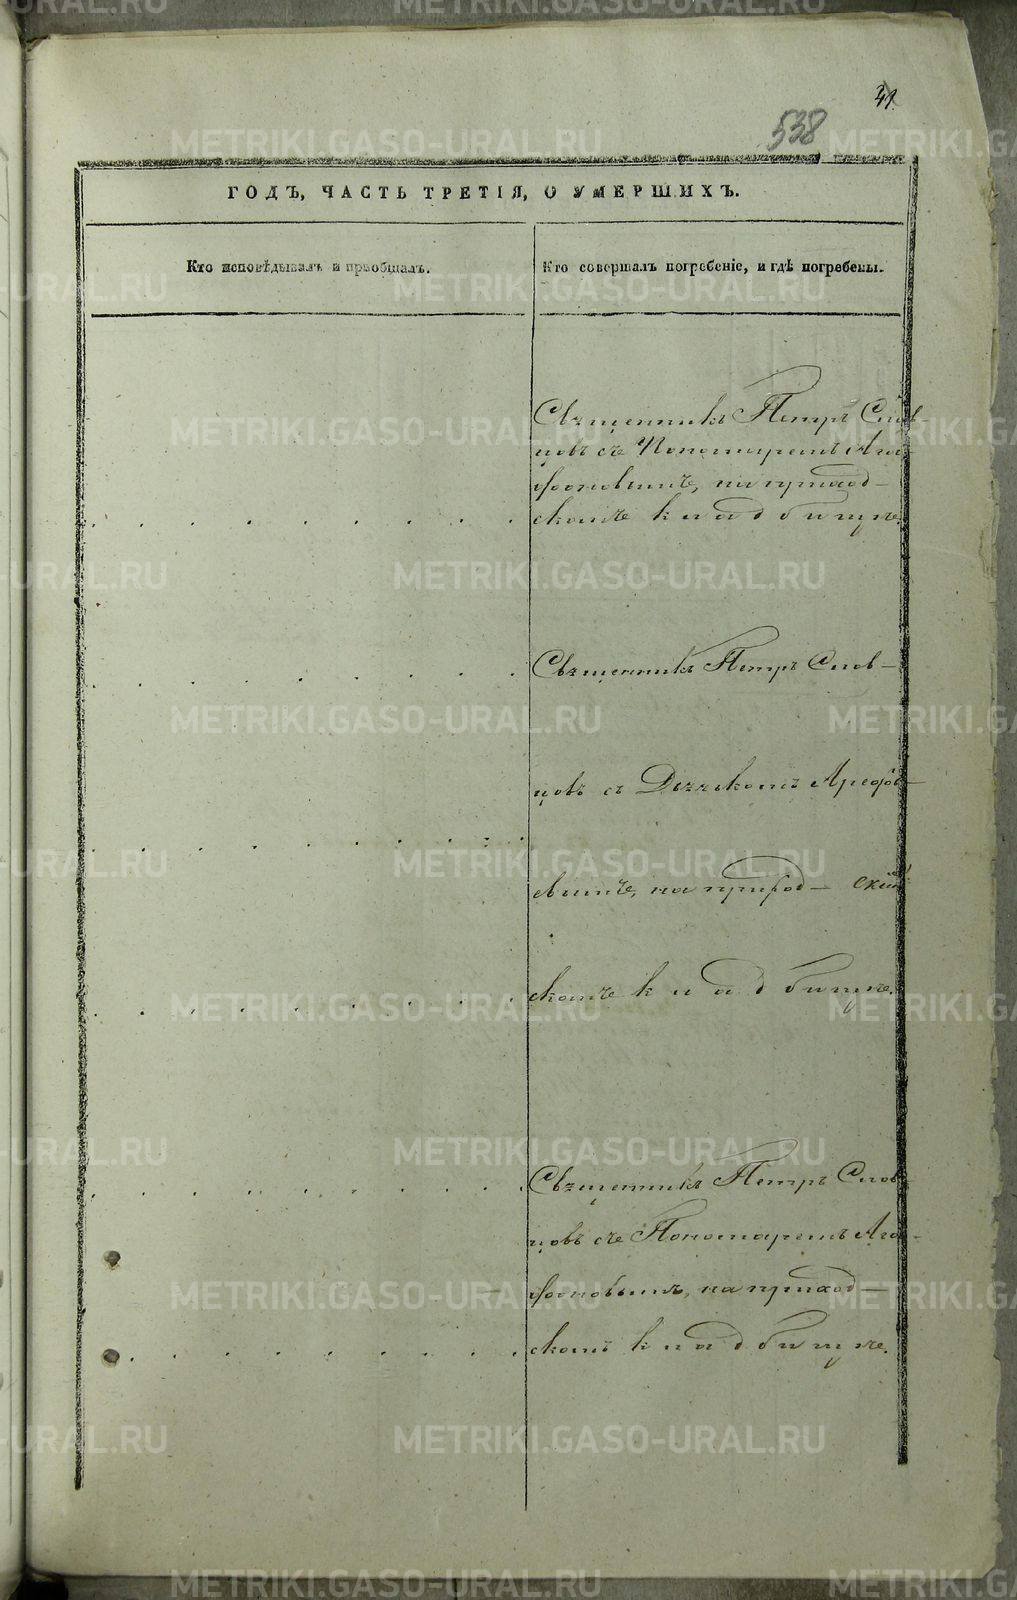 41.
538
ГОДЪ, ЧАСТЬ ТРЕТІЯ, О УМЕРШИХЪ.
Кто исповѣдывалъ и пріобщалъ.
Кто совершалъ погребеніе, и гдѣ погребены.
Священникъ Петръ Слов-
цовъ съ Пономаремъ Ага-
фоновымъ, на приход-
скомъ кладбищѣ.
Священникъ Петръ Слов-
цовъ съ Дьячкомъ Арефь-
евымъ, на приход-
скомъ кладбищѣ.
Священникъ Петръ Слов-
цовъ съ Пономаремъ Ага-
фоновымъ, на приход-
скомъ кладбищѣ.
METRIKI.GASO-URAL.RU